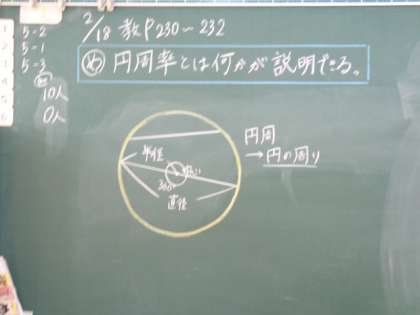 2/18 教P230～232
5-2
5-1
5-3
10人
0人
め 円周率とは何かが説明できる。
円周
→円の周り
半径
360°
直径